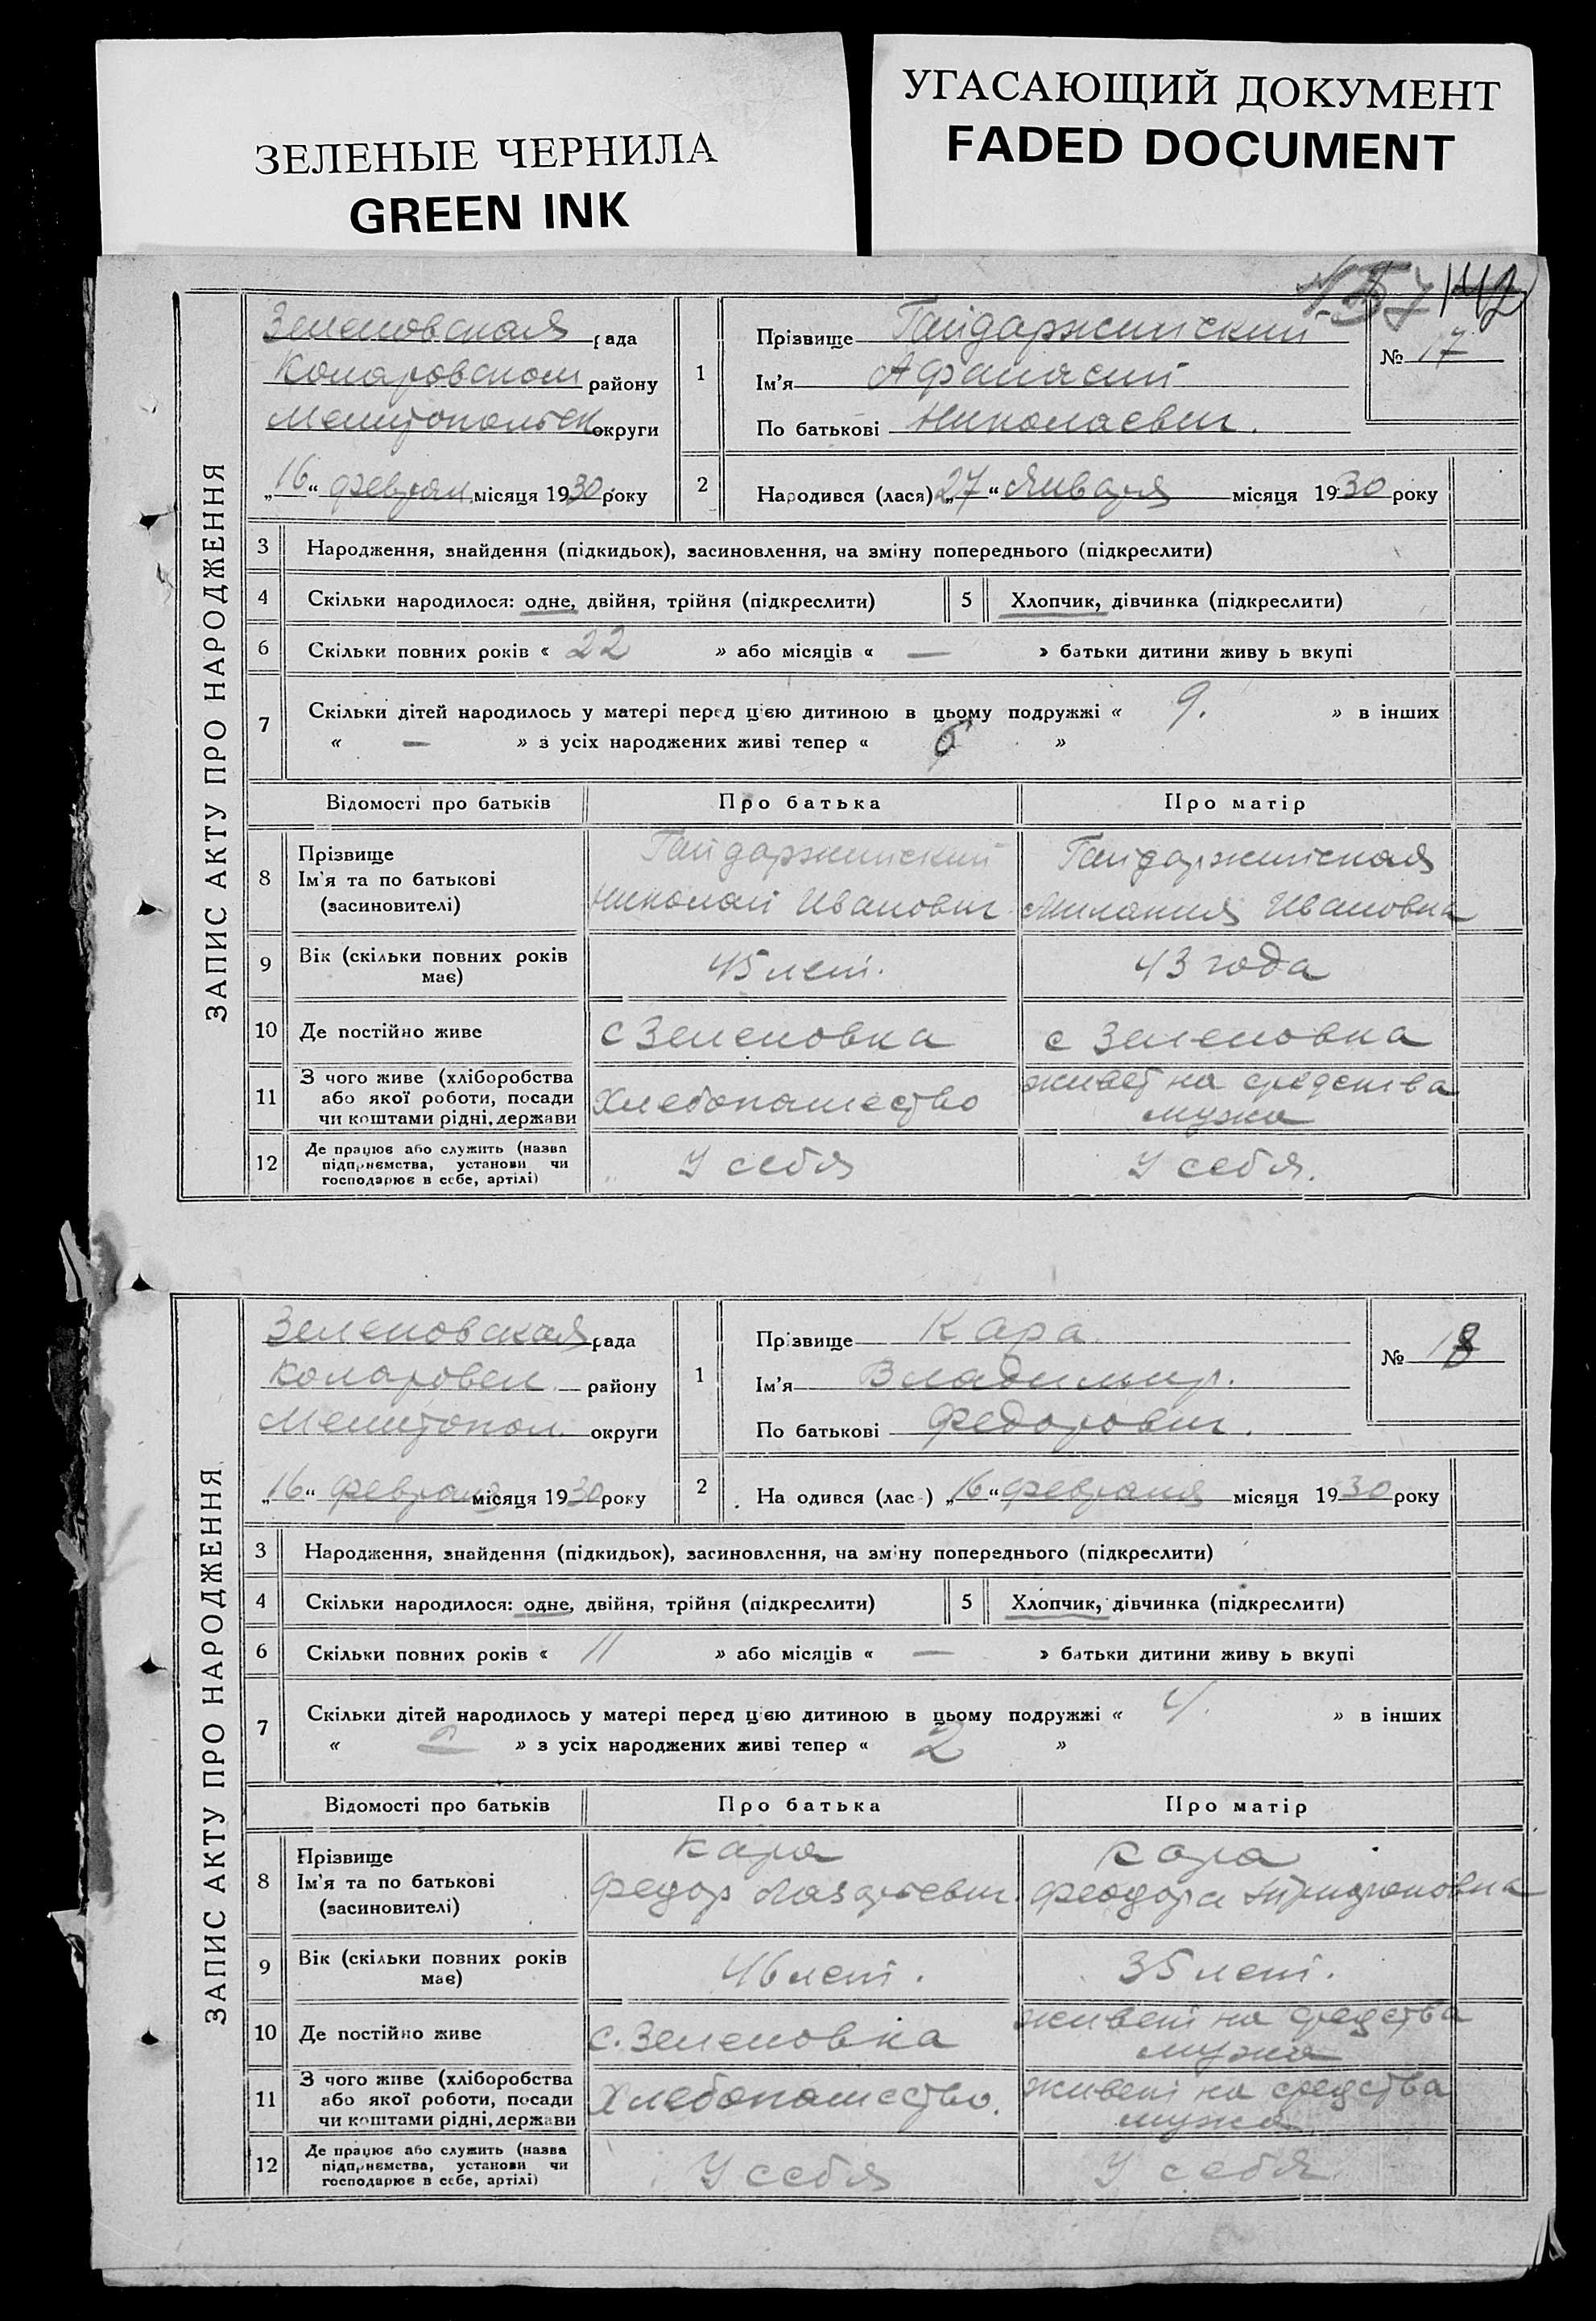 ЗЕЛЕНЫЕ ЧЕРНИЛА
GREEN INK
УГАСАЮЩИЙ ДОКУМЕНТ
FADED DOCUMENT
ЗАПИС АКТУ ПРО НАРОДЖЕННЯ
Зеленовская рада
Коларовском району
Мелитопольск округи
„16“ феврал місяця 1930 року
1 Прізвище Гайдаржийский
Ім'я Афанасий
По батькові Николаевич.
№ 17
2 Народився (лася) „27“ Января місяця 1930 року
3 Народження, знайдення (підкидьок), засиновлення, на зміну попереднього (підкреслити)
4 Скільки народилося: одне, двійня, трійня (підкреслити) 5 Хлопчик, дівчинка (підкреслити)
6 Скільки повних років « 22 » або місяців « — » батьки дитини живу ь вкупі
7 Скільки дітей народилось у матері перед цією дитиною в цьому подружжі « 9. » в інших
« — » з усіх народжених живі тепер « 6 »
Відомості про батьків Про батька Про матір
8 Прізвище Гайдаржийский Гайдаржийская
Ім'я та по батькові Николай Иванович Ивановна
(засиновителі)
9 Вік (скільки повних років 45 лет. 43 года
має)
10 Де постійно живе с Зеленовка с Зеленовка
11 З чого живе (хліборобства живет на средства
або якої роботи, посади Хлебопашество мужа
чи коштами рідні, держави
12 Де працює або служить (назва У себя У себя.
підприємства, установи чи
господарює в себе, артілі)
ЗАПИС АКТУ ПРО НАРОДЖЕННЯ
Зеленовская рада
Коларовск. району
Мелитопол. округи
„16“ февраля місяця 1930 року
1 Прізвище Кара
Ім'я Владимир.
По батькові Федорович.
№ 18
2 На одився (лас ) „16“ февраля місяця 1930 року
3 Народження, знайдення (підкидьок), засиновлення, на зміну попереднього (підкреслити)
4 Скільки народилося: одне, двійня, трійня (підкреслити) 5 Хлопчик, дівчинка (підкреслити)
6 Скільки повних років « 11 » або місяців « — » батьки дитини живу ь вкупі
7 Скільки дітей народилось у матері перед цією дитиною в цьому подружжі « 4. » в інших
« » з усіх народжених живі тепер « 2 »
Відомості про батьків Про батька Про матір
8 Прізвище Кара Кара
Ім'я та по батькові Федор Лазарьевич. Феодора
(засиновителі)
9 Вік (скільки повних років 46 лет. 35 лет.
має)
10 Де постійно живе с. Зеленовка живет на средства
мужа
11 З чого живе (хліборобства живет на средства
або якої роботи, посади Хлебопашество. мужа
чи коштами рідні, держави
12 Де працює або служить (назва У себя У себя
підприємства, установи чи
господарює в себе, артілі)